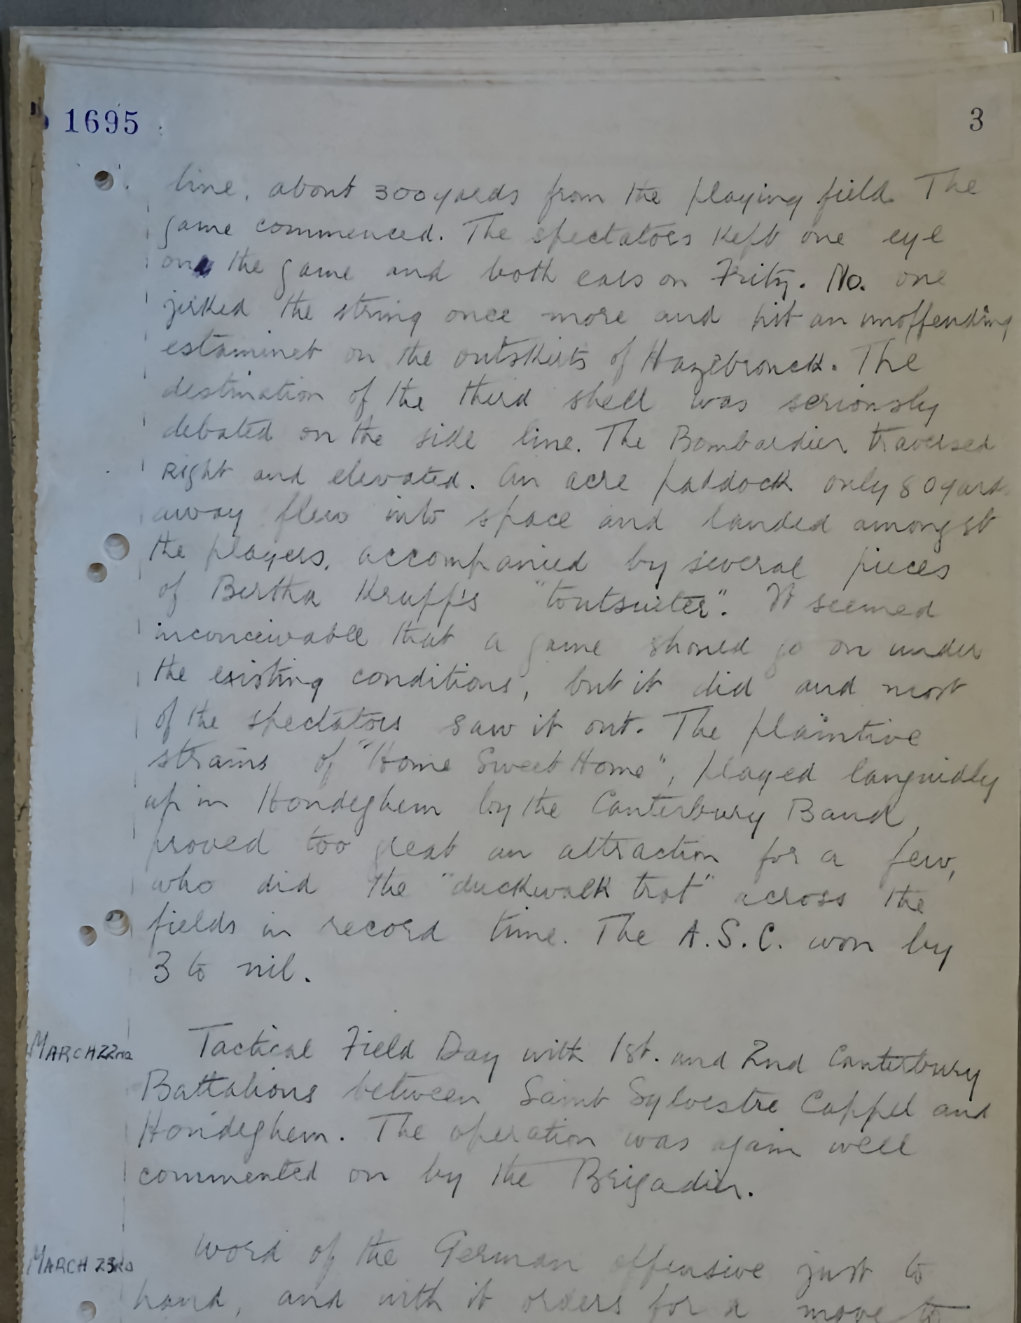 1695
3
line, about 300 yards from the playing field. The
game commenced. The spectators kept one eye
on the game and both ears on Fritz. No. one
jerked the string once more and hit an unoffending
estaminet on the outskirts of Hazebrouck. The
destination of the third shell was seriously
debated on the side line. The Bombardier traversed
right and elevated. An acre paddock only 80 yards
away flew into space and landed amongst
the players, accompanied by several pieces
of Bertha Krupp's "toutsuiter". It seemed
inconceivable that a game should go on under
the existing conditions, but it did and most
of the spectators saw it out. The plaintive
strains of "Home Sweet Home", played languidly
up in Hondeghem by the Canterbury Band,
proved too great an attraction for a few,
who did the "duckwalk trot" across the
fields in record time. The A.S.C. won by
3 to nil.
MARCH 22nd Tactical Field Day with 1st. and 2nd Canterbury
Battalions between Saint Sylvestre Cappel and
Hondeghem. The operation was again well
commented on by the Brigadier.
MARCH 23rd Word of the German offensive just to
hand, and with it orders for a move to